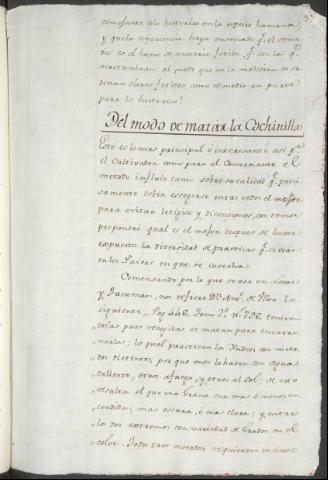 semejante a lo histerico en la especie humana,
y que la experiencia haya enseñado q.e el reme-
dio es el humo de materia fetida, q.e son la q.e
acostumbran al paso que en la medicina se or-
denan olores fetidos como remedio en parte
para lo histerico?
Del modo de matar la Cochinilla
Esto es lo mas principal e interesante asi p.a
el Cultivador como para el Comerciante el
metodo influie tanto sobre su calidad q.e preci-
samente debia escogerse entre todos el mejor
para evitar letigios y dicenciones, con temor
propondré qual es el mejor despues de havér
expuesto la diversidad de practicas q.e se usan
en los Paises en que se cosecha.
Comensando por lo que se usa en Loxa
y Tucuman, nos refiere D.n Ant.o de Ulloa lo
siguiente „ Pag. 446. Tomo 2.o n.o 796. tenien-
„ dolas pues recogidas se matan para encurti-
„ narlas; lo qual practican los Yndios con meto-
„ dos distintos, por que unos lo hacen con agua
„ caliente, otros a fuego, y otros al Sol; de esto
„ resulta el que una grana sea mas ó menos en-
„ cendida, mas oscura, ó mas clara; y entre
„ los dos extremos con variedad de grados en el
„ color. Todos tres metodos requieren un cierto